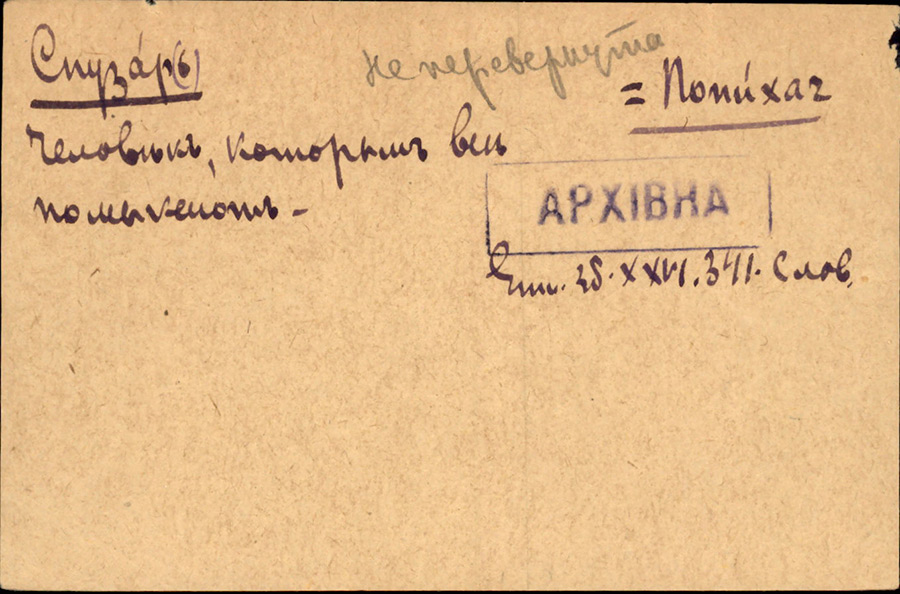 Спуза́р(ь)
не перевернута
= Попи́хач
Человѣкъ, которымъ всѣ
помыкаютъ -
АРХІВНА
Етн. Зб. XXVI. 341. Слов.